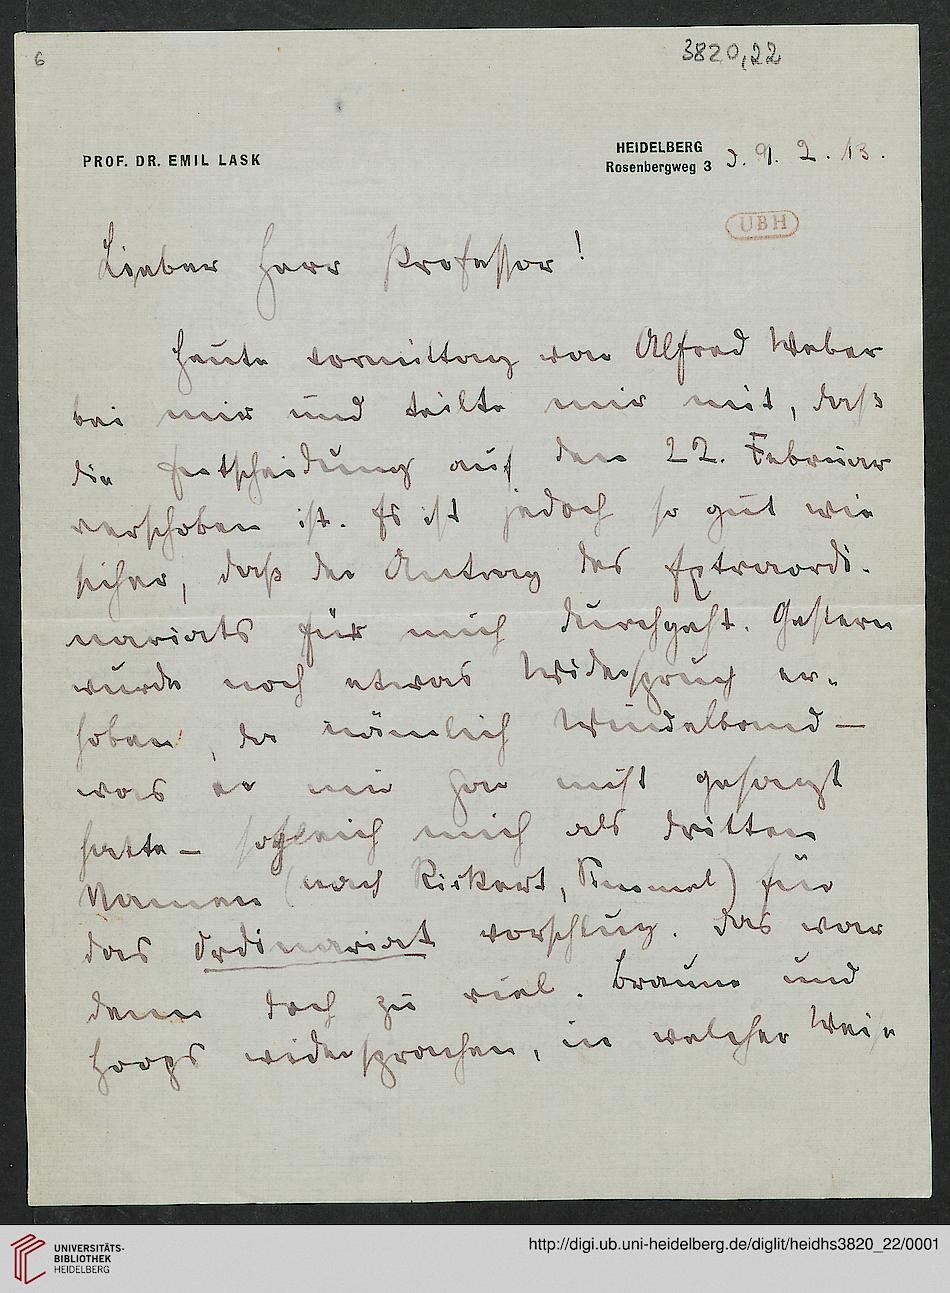 6
3820,22
PROF. DR. EMIL LASK
HEIDELBERG
Rosenbergweg 3
d. 9. 2. 13.
UBH
Lieber Herr Professor!
Heute vormittag war Alfred Weber
bei mir und teilte mir mit, daß
die Entscheidung auf den 22. Februar
verschoben ist. Es ist jedoch so gut wie
sicher, daß der Antrag des Extraordi-
nariats für mich durchgeht. Gestern
wurde noch etwas Widerspruch er-
hoben, da nämlich Windelband –
was er mir gar nicht gesagt
hatte – sogleich mich als dritten
Namen (nach Rickert, Simmel) für
das Ordinariat vorschlug. Das war
denn doch zu viel. Braune und
Hoops widersprachen, in welcher Weise
UNIVERSITÄTS-
BIBLIOTHEK
HEIDELBERG
http://digi.ub.uni-heidelberg.de/diglit/heidhs3820_22/0001